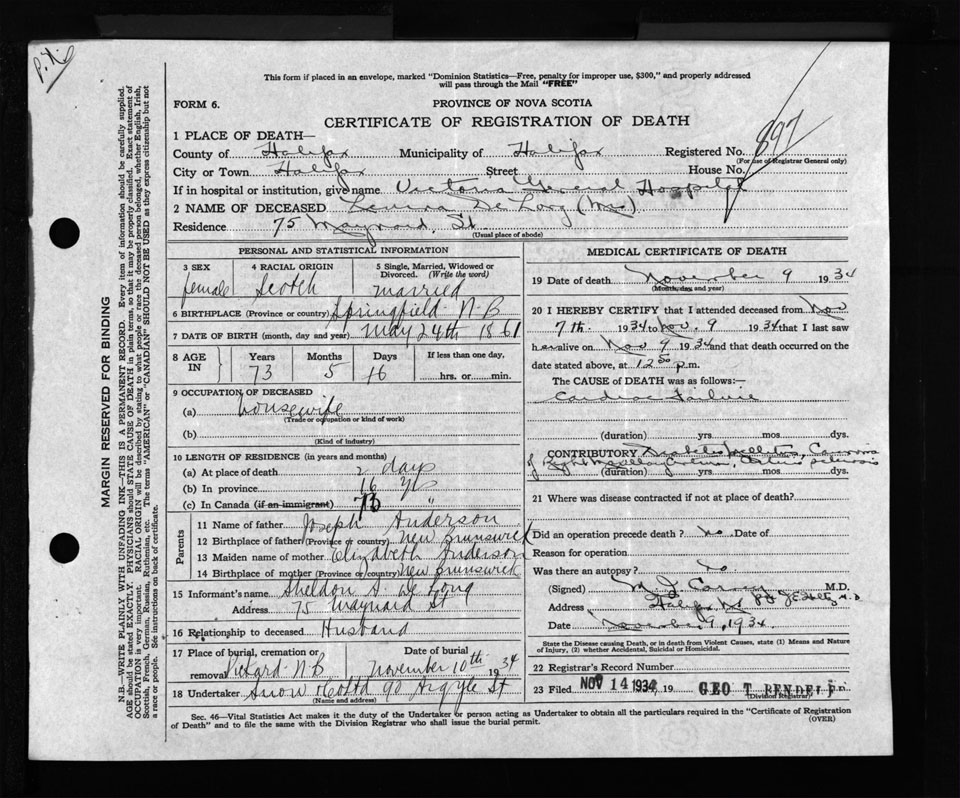 P.N.
This form if placed in an envelope, marked "Dominion Statistics—Free, penalty for improper use, $300," and properly addressed
will pass through the Mail "FREE"
FORM 6.
PROVINCE OF NOVA SCOTIA
CERTIFICATE OF REGISTRATION OF DEATH
1 PLACE OF DEATH—
County of Halifax Municipality of Halifax Registered No. 897
(For use of Registrar General only)
City or Town Halifax Street House No.
If in hospital or institution, give name Victoria General Hospital
2 NAME OF DECEASED De Long (Mrs)
Residence 75 Maynard, St.
(Usual place of abode)
PERSONAL AND STATISTICAL INFORMATION
3 SEX 4 RACIAL ORIGIN 5 Single, Married, Widowed or
Divorced. (Write the word)
female Scotch married
6 BIRTHPLACE (Province or country) Springfield N-B
7 DATE OF BIRTH (month, day and year) May 24th 1861
8 AGE IN Years Months Days If less than one day,
73 5 16 hrs. or min.
9 OCCUPATION OF DECEASED
(a) housewife
(Trade or occupation or kind of work)
(b)
(Kind of industry)
10 LENGTH OF RESIDENCE (in years and months)
(a) At place of death 2 days
(b) In province 16 yrs
(c) In Canada (if an immigrant) 73 "
Parents
11 Name of father Joseph Anderson
12 Birthplace of father (Province or country) New Brunswick
13 Maiden name of mother Elizabeth Anderson
14 Birthplace of mother (Province or country) New Brunswick
15 Informant's name Sheldon A. De Long
Address 75 Maynard St
16 Relationship to deceased Husband
17 Place of burial, cremation or
removal Pickard N-B
Date of burial
November 10th 1934
18 Undertaker Snow & Co Ltd 90 Argyle St
(Name and address)
MEDICAL CERTIFICATE OF DEATH
19 Date of death November 9 1934
(Month, day and year)
20 I HEREBY CERTIFY that I attended deceased from Nov
7th. 1934 to Nov. 9 1934 that I last saw
her alive on Nov 9 1934 and that death occurred on the
date stated above, at 12 50 p.m.
The CAUSE of DEATH was as follows:—
Cardiac Failure
(duration) yrs. mos. dys.
CONTRIBUTORY Diabetes Mellitus,
of Right
(duration) yrs. mos. dys.
21 Where was disease contracted if not at place of death?
Did an operation precede death? no. Date of
Reason for operation
Was there an autopsy? no
(Signed) M.D.
Address Halifax
Date November 9, 1934.
State the Disease causing Death, or in death from Violent Causes, state (1) Means and Nature
of Injury, (2) whether Accidental, Suicidal or Homicidal.
22 Registrar's Record Number
23 Filed NOV 14 1934, 19 GEO T. RENDELF
(Division Registrar)
Sec. 46—Vital Statistics Act makes it the duty of the Undertaker or person acting as Undertaker to obtain all the particulars required in the "Certificate of Registration
of Death" and to file the same with the Division Registrar who shall issue the burial permit. (OVER)
MARGIN RESERVED FOR BINDING
N.B.—WRITE PLAINLY WITH UNFADING INK—THIS IS A PERMANENT RECORD. Every item of information should be carefully supplied.
AGE should be stated EXACTLY. PHYSICIANS should STATE CAUSE OF DEATH in plain terms, so that it may be properly classified. Exact statement of
OCCUPATION is very important. RACIAL ORIGIN will be described by stating to what people or race the deceased person belonged, whether English, Irish,
Scottish, French, German, Russian, Ruthenian, etc. The terms "AMERICAN" or "CANADIAN" SHOULD NOT BE USED as they express citizenship but not
a race or people. See instructions on back of certificate.